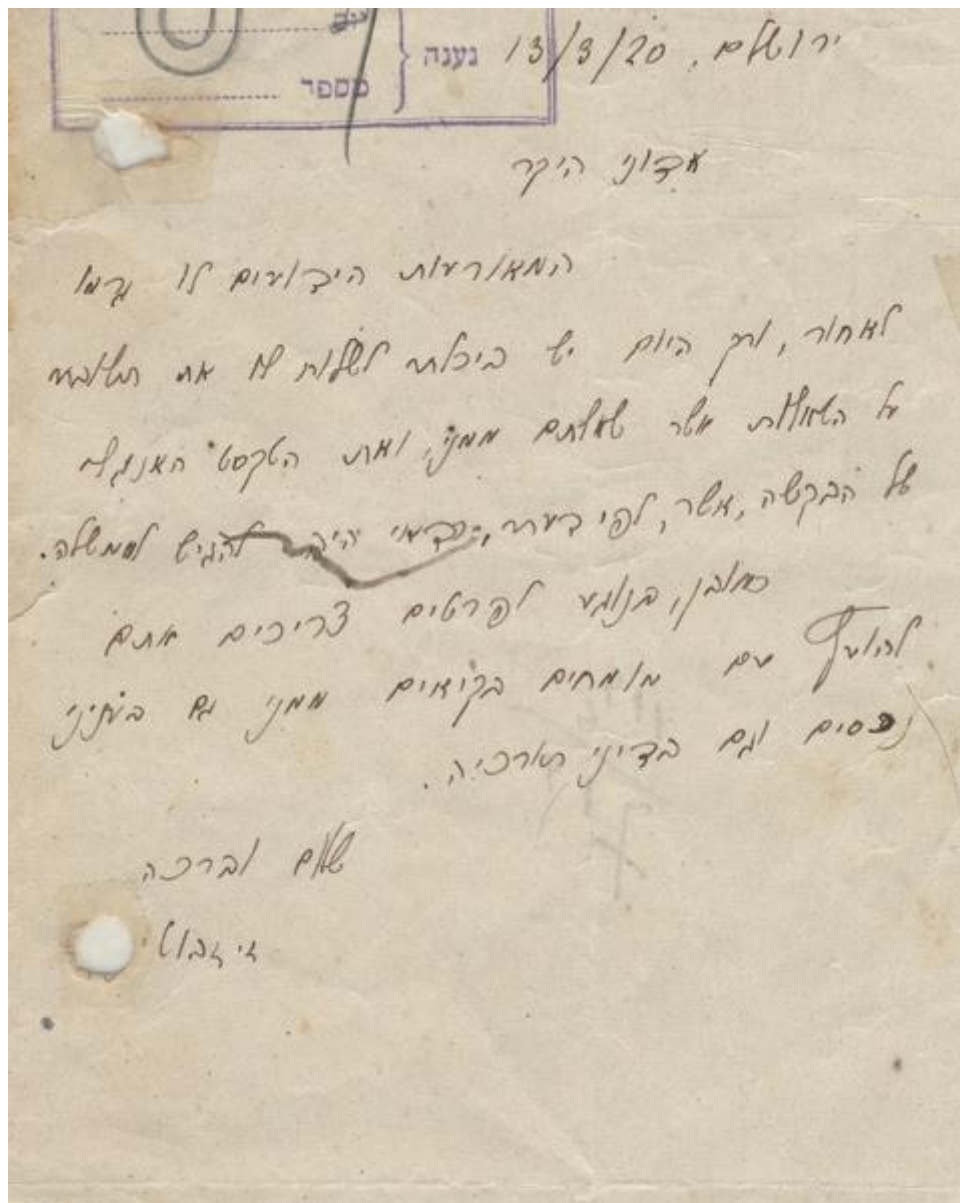 נענה
מספר
ירושלם, 13/3/20
אדוני היקר
המאורעות הידועים לו גרמו
לאחור, ורק היום יש ביכלתי לשלוח לו את תשובתי
על השאלות אשר שאלתם ממני, ואת הטקסט האנגלי
של הבקשה, אשר, לפי דעתי, כדאי היה להגיש לממשלה.
כמובן, בנוגע לפרטים צריכים אתם
להועץ עם מומחים בקיאים ממני גם בעניני
נכסים וגם בדיני תורכיה.
שלום וברכה